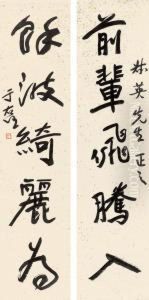 英先生正之
前輩飛騰入
餘波綺麗為
于右任